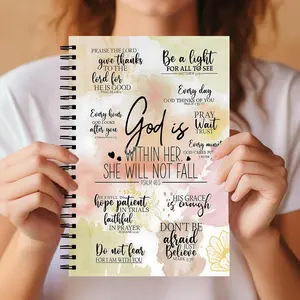 PRAISE THE LORD
give thanks
TO THE LORD
lord for
HE IS GOOD
Be a light
FOR ALL TO SEE
Every day
GOD THINKS OF YOU
Every hour
GOD LOOKS
after you
PRAY
Wait
TRUST
Every minute
God is
WITHIN HER,
SHE WILL NOT FALL
PSALM 46:5
hope patient
IN TRIALS
faithful
IN PRAYER
HIS GRACE
is enough
Do not fear
FOR I AM WITH YOU
DON'T BE
afraid
JUST
Believe
MARK 5:36